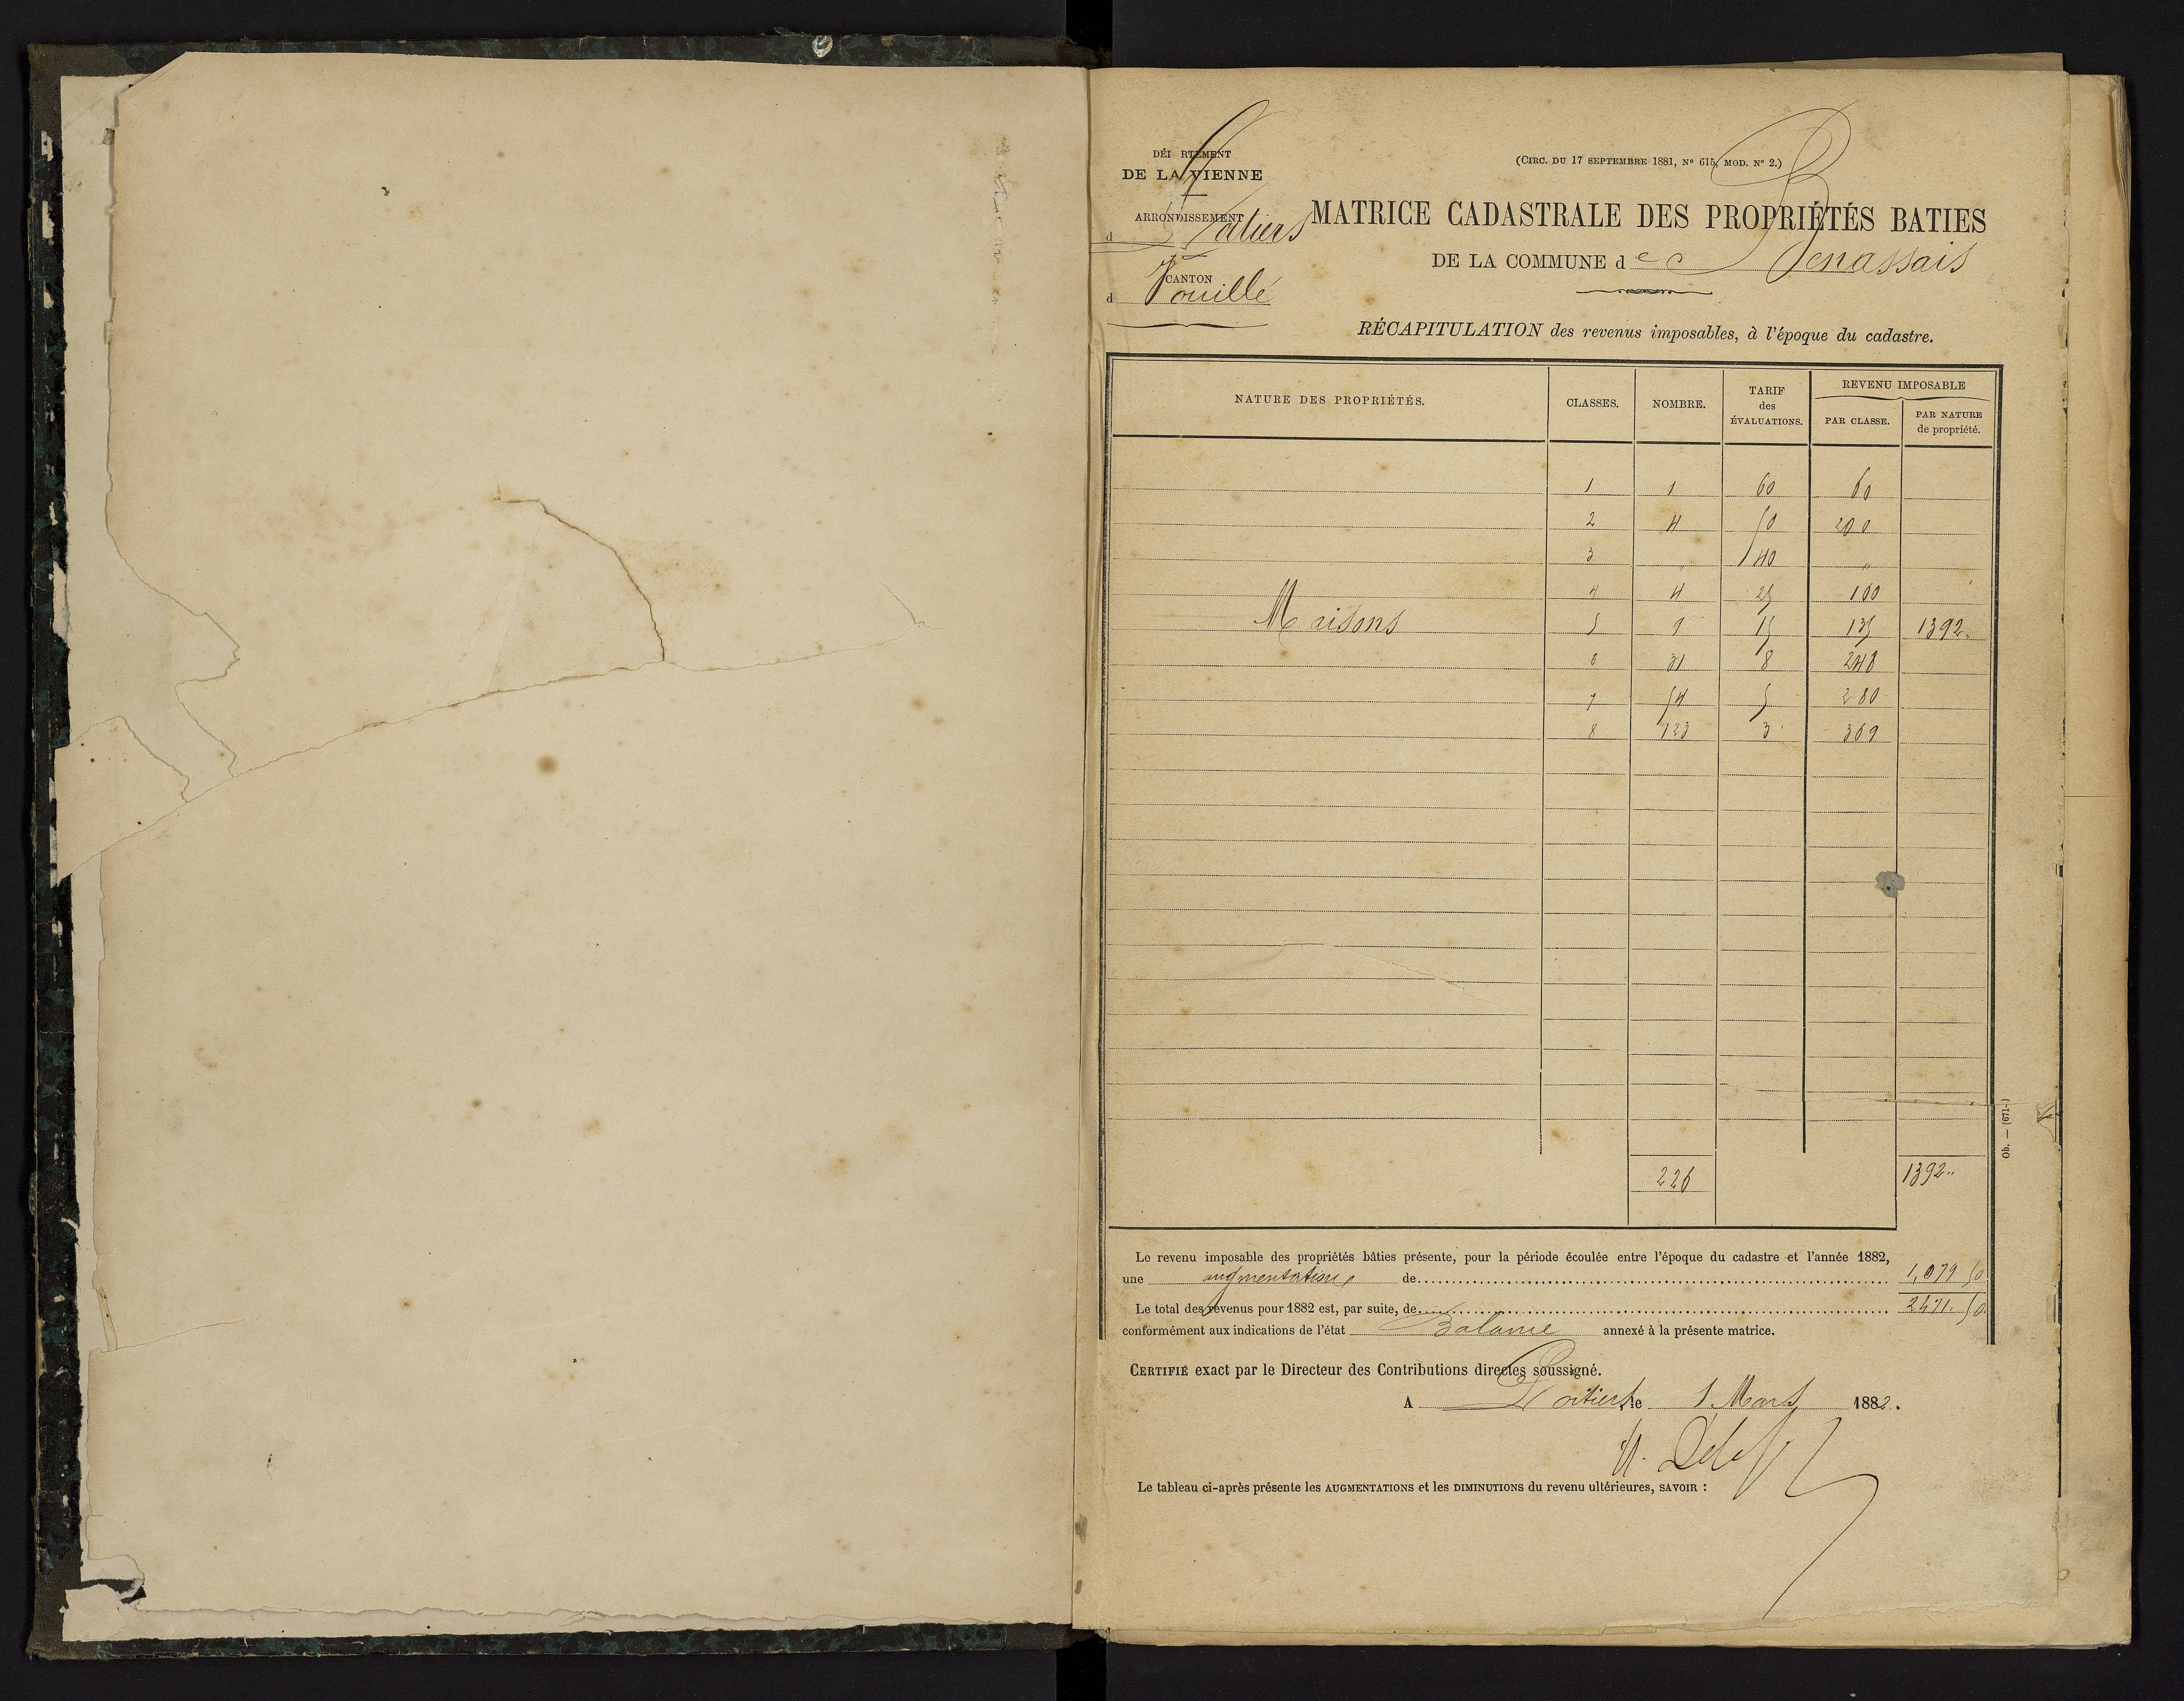 DÉPARTEMENT
DE LA VIENNE
(CIRC. DU 17 SEPTEMBRE 1881, N° 615, MOD. N° 2.)
ARRONDISSEMENT
d Poitiers
MATRICE CADASTRALE DES PROPRIÉTÉS BATIES
DE LA COMMUNE de Benassais
CANTON
d Vouillé
RÉCAPITULATION des revenus imposables, à l'époque du cadastre.
NATURE DES PROPRIÉTÉS. CLASSES. NOMBRE. TARIF des ÉVALUATIONS. REVENU IMPOSABLE PAR CLASSE. PAR NATURE de propriété.
1 1 60 60
2 4 50 200
3 " 40 "
4 4 25 100
Maisons 5 9 15 135 1392 "
6 31 8 248
7 54 5 280
8 123 3 369
226 1392 "
Le revenu imposable des propriétés bâties présente, pour la période écoulée entre l'époque du cadastre et l'année 1882,
une augmentation de 1,079 50
Le total des revenus pour 1882 est, par suite, de 2471. 50
conformément aux indications de l'état Balance annexé à la présente matrice.
CERTIFIÉ exact par le Directeur des Contributions directes soussigné.
A Poitiers, le 1 Mars 1882.
Le tableau ci-après présente les AUGMENTATIONS et les DIMINUTIONS du revenu ultérieures, SAVOIR :
Ob. — (671-)